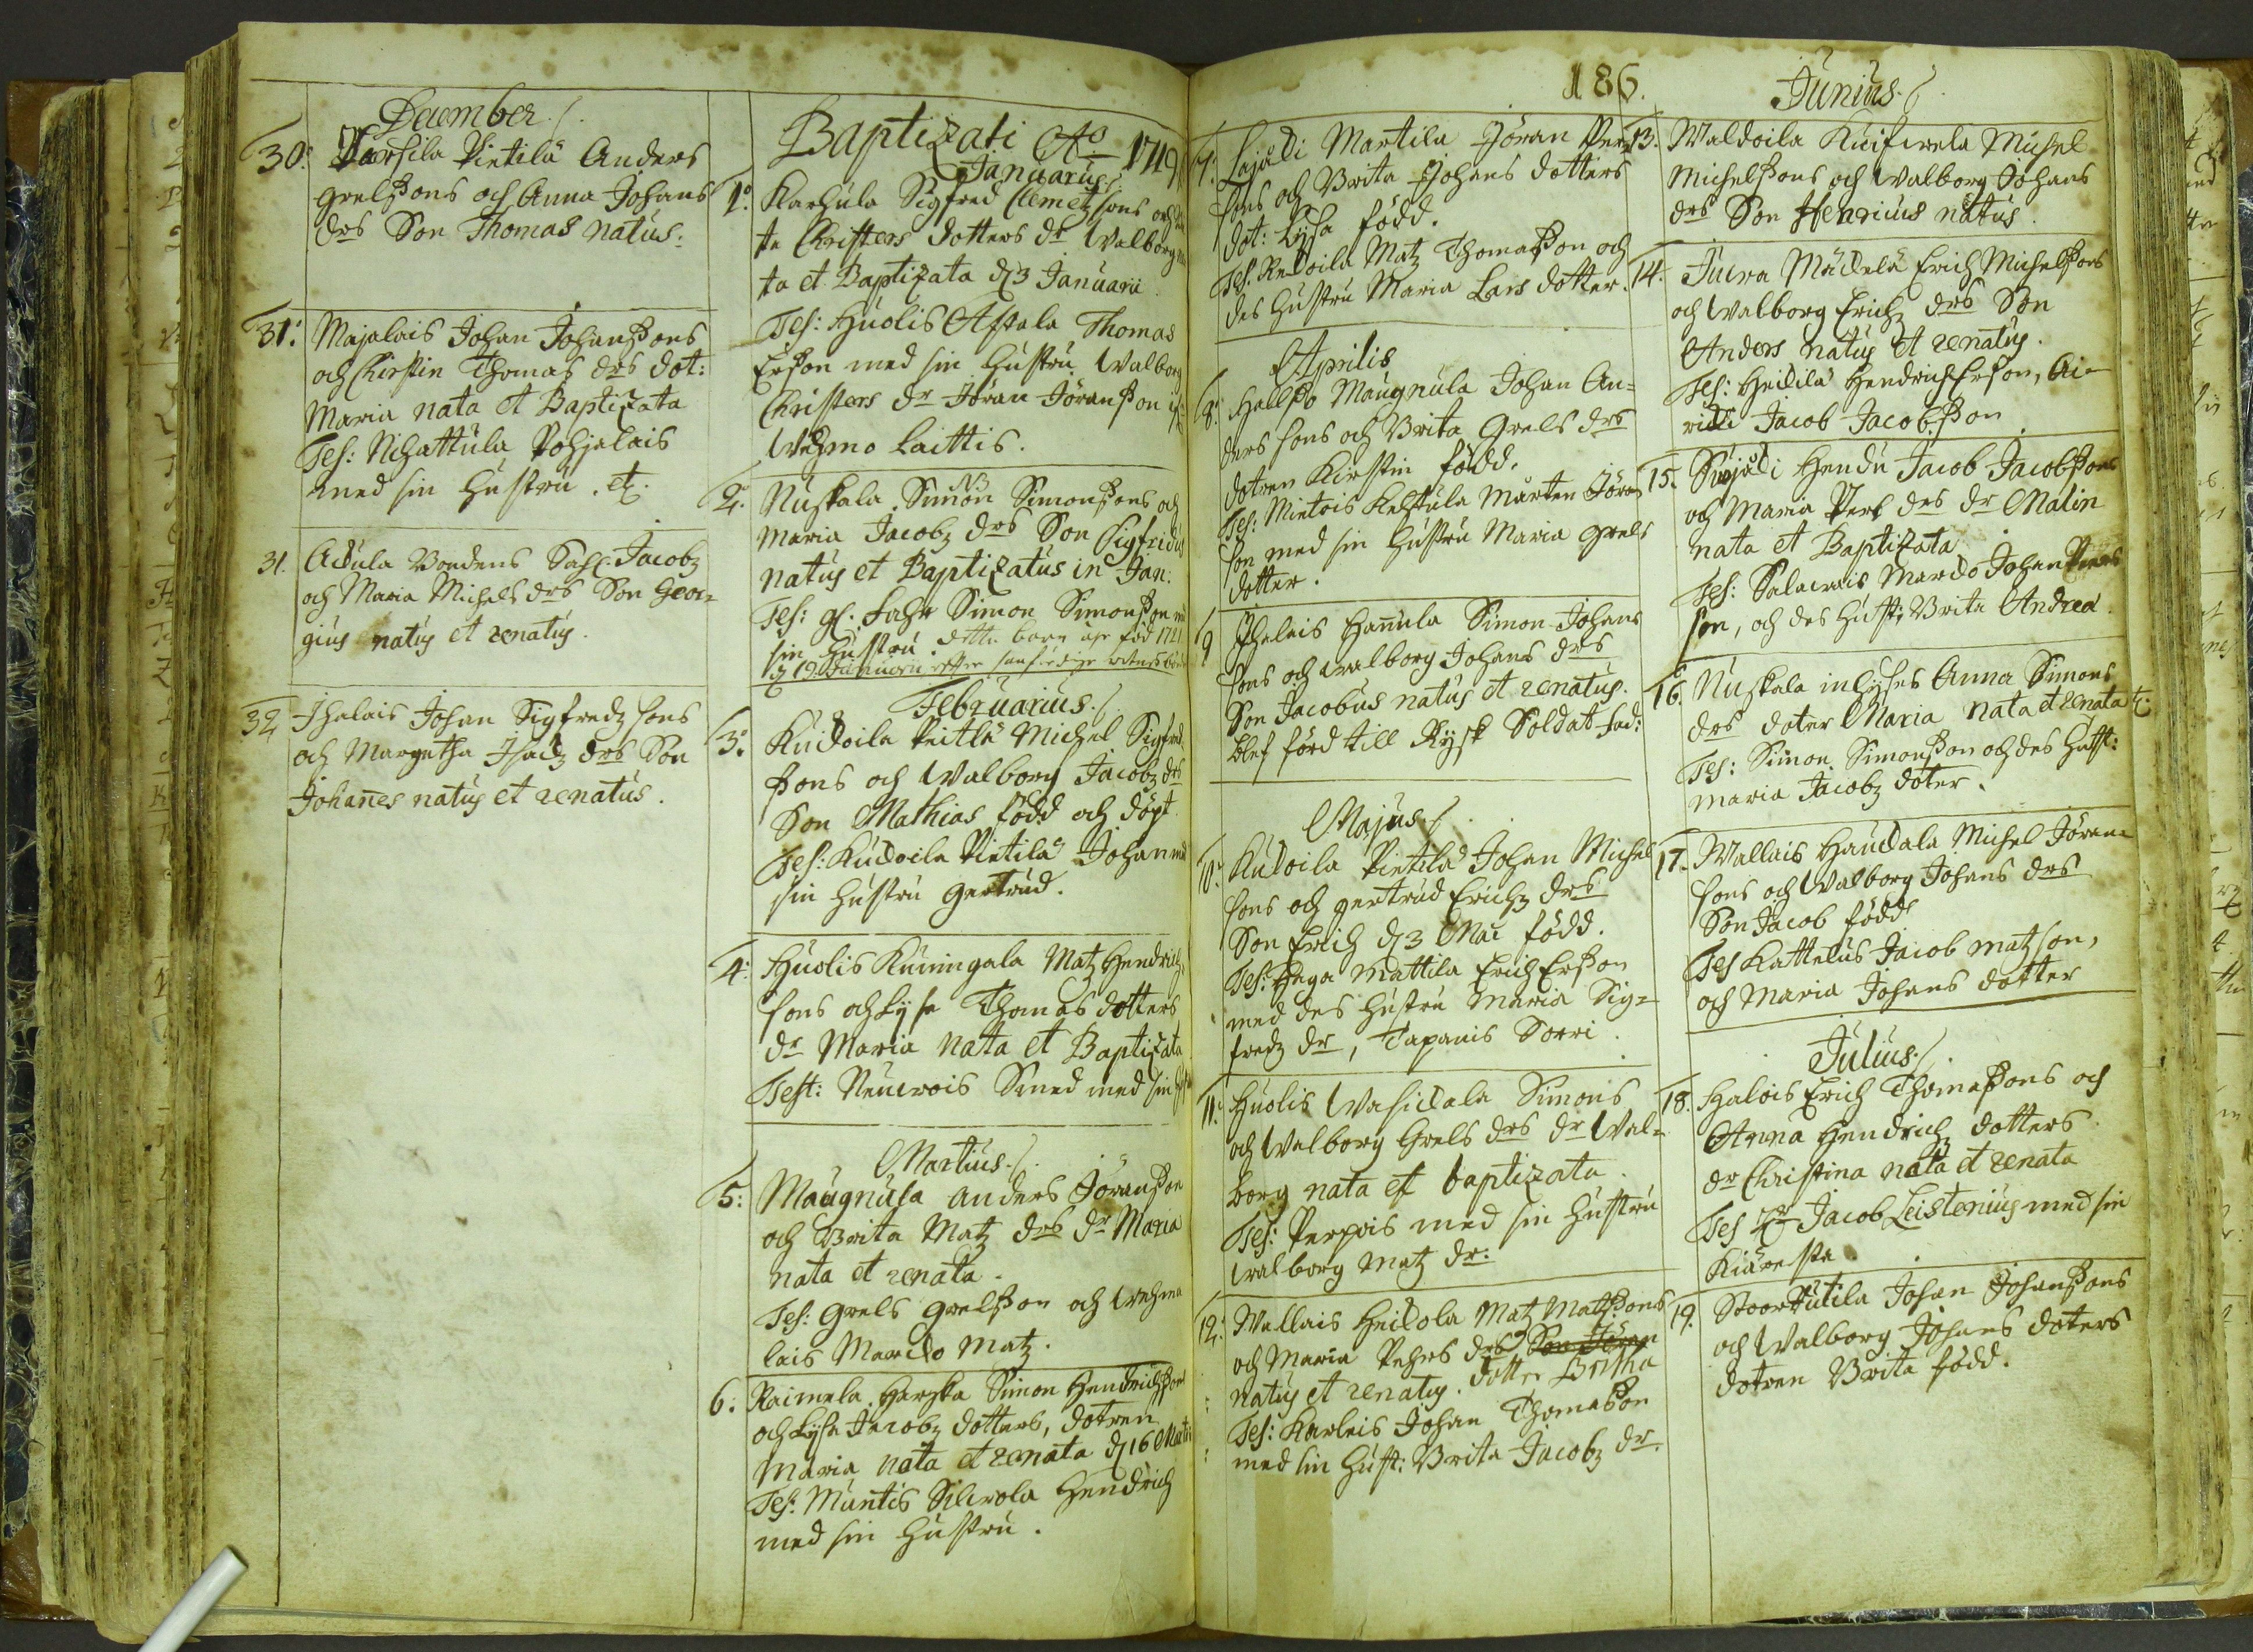 December.
30. Warsila Pietilä Anders
Grelssons och Anna Johans
drs Son Thomas natus.
31. Majalais Johan Johanssons
och Chirstin Thomas drs dot:
Maria nata et Baptizata
Tes: Nihattula Pohjalais
med sin Hustru. etc.
31. Aidula Bondens Sahl. Jacobz
och Maria Michels drs Son Geor=
gius natus et renatus.
32 Ihalais Johan Sigfredz sons
och Margetha Isacz drs Son
Johannes natus et renatus.
Baptizati Ao 1719
Januarius
1. Karhula Sigfred Clemetz sons och
ta Christers dotters dr Walborg
ta et Baptizata d 3 Januarii.
Tes: Huolis Astala Thomas
Ersson med sin Hustru Walborg
Christers dr Jöran Jöransson
Wehmo Laittis.
2. Nuskala Simon Simonssons och
Maria Jacobz drs Son Sigfridus
natus et Baptizatus in Jan:
Tes: gl. Fahr Simon Simonsson
sin Hustru. detta barn är född 1721
Februarius.
3. Kuidoila Peitlä Michel Sigfred
ssons och Walborg Jacobz drs
Son Mathias född och döpt.
Tes: Kudoila Pietilä Johan med
sin Hustru Gertrud.
4. Huolis Kuningala Matz Hendrichz
sons och Lysa Thomas dotters
dr Maria nata et Baptizata
Test: Neuwois Smed med sin
Martius.
5: Maugnula Anders Jöransson
och Brita Matz drs dr Maria
nata et renata.
Tes: Grels Grelsson och Wehma
lais Mardo Matz.
6: Raimela Harzka Simon Hendrichssons
och Lysa Jacobz dotters, dotren
Maria nata et renata d 16 Marti
Tes: Muntis Silwola Hendrich
med sin Hustru.
186.
7. Lajoldi Martila Jöran Pers
sons och Brita Johans dotters
dot: Lysa född.
Tes. Redoila Matz Thomasson och
des Hustru Maria Lars dotter.
Aprilis
8. Heilsio Maugnula Johan An=
ders sons och Brita Grels drs
dotren Kirstin född.
Tes: Mietois Kestula Mårten Jöran
son med sin Hustru Maria Grels
dotter.
9 Ihalais Hannula Simon Johans
sons och Walborg Johans drs
Son Jacobus natus et renatus.
blef förd till Rysk Soldat
Majus.
10. Kudoila Pietilä Johan Michel
sons och Gertrud Erichz drs
Son Erich d 3 Maii född.
Tes: Haga Mattila Erich Ersson
med des Hustru Maria Sig=
fredz dr, Tapanis Sorri.
11. Huolis Wasidala Simons
och Walborg Grels drs dr Wal=
borg nata et baptizata.
Tes: Perpois med sin Hustru
Walborg Matz dr.
12. Wallais Heidola Matz Matssons
och Maria Pehrs drs Son Jöran
natus et renatus. dotter Britha
Tes: Karleis Johan Thomasson
med sin Hust: Brita Jacobz dr.
Junius.
13. Waldoila Kuifwela Michel
Michelssons och Walborg Johans
drs Son Henricus natus.
14. Juwa Mäckelä Erich Michelssons
och Walborg Erichz drs Son
Anders natus et renatus.
Tes: Heidilä Hendrich Ersson, Ai=
ridi Jacob Jacobsson
15. Sujoldi Hendu Jacob Jacobssons
och Maria Pers drs dr Malin
nata et Baptizata
Tes: Salawais Mardo Johan Pers
son, och des Hust: Brita Andrea
16. Nuskala inhyses Anna Simons
drs doter Maria nata et renata etc.
Tes: Simon Simonsson och des Hust:
Maria Jacobz doter.
17. Wallais Haudala Michel Jöran=
sons och Walborg Johans drs
Son Jacob född
Tes Kattelus Jacob Matzson,
och Maria Johans dotter
Julius.
18. Halois Erich Thomassons och
Anna Hendrichz dotters
dr Christina nata et renata
Tes Hr Jacob Leistenius med sin
Kiäresta.
19. Stoor Kutila Johan Johanssons
och Walborg Johans doters
dotren Brita född.